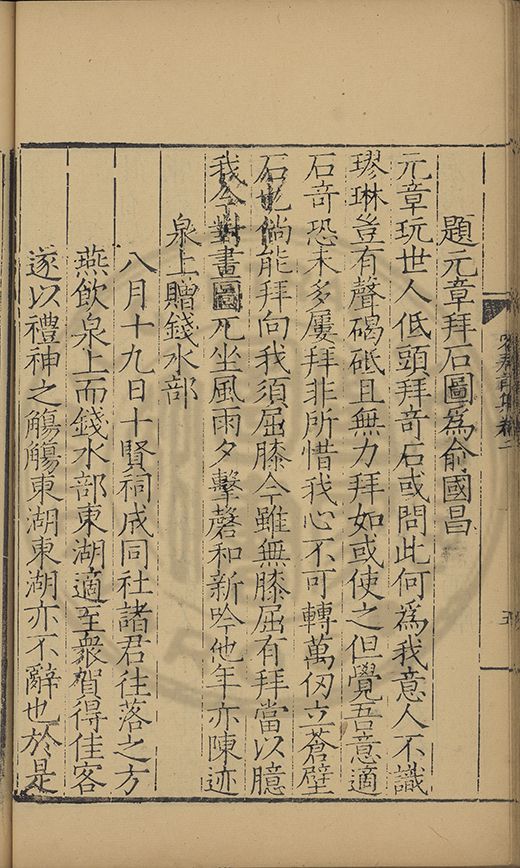 題元章拜石圖為俞國昌
元章玩世人低頭拜奇石或問此何爲我意人不識
璆琳豈有聲碣砥且無力拜如或使之但覺吾意適
石奇恐未多屢拜非所惜我心不可轉萬仞立蒼壁
石也倘能拜向我須屈膝今雖無膝屈有拜當以臆
我今對畫圖兀坐風雨夕擊磬和新吟他年亦陳迹
泉上贈錢水部
八月十九日十賢祠成同社諸君往落之方
燕飲泉上而錢水部東湖適至衆賀得佳客
遂以禮神之觴觴東湖東湖亦不辭也於是